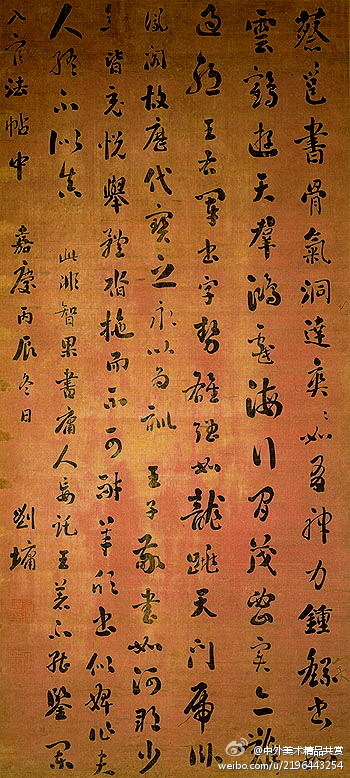 蔡邕書骨氣洞達爽爽如有神力鍾繇書
雲鵠遊天群鴻戲海行間茂密實亦難
過 王右軍書字勢雄強如龍跳天門虎臥
鳳閣故歷代寶之永以為訓 王子敬書如河朔少
年皆充悅舉體沓拖而不可耐羊欣書似婢作夫
人 不似真 此非智果書庸人妄託王著不能鑒闌
入官法帖中 嘉慶丙辰冬日 劉墉
@中外美术精品共赏
weibo.com/u/2196443254